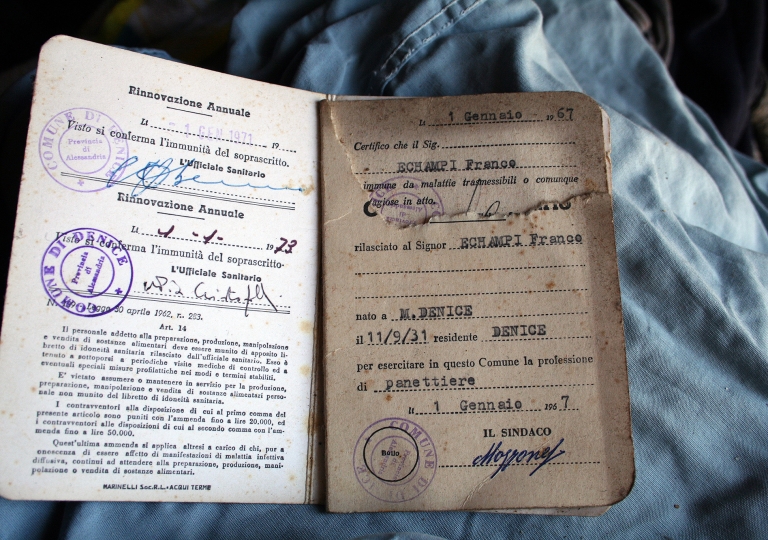 Rinnovazione Annuale
lì 1 GEN 1971 19
Visto si conferma l'immunità del soprascritto.
L'Ufficiale Sanitario
COMUNE DI DENICE
Provincia di Alessandria
Rinnovazione Annuale
lì 1 - 1 - 1973
Visto si conferma l'immunità del soprascritto.
L'Ufficiale Sanitario
COMUNE DI DENICE
Provincia di Alessandria
Legge 30 aprile 1962, n. 283.
Art. 14
Il personale addetto alla preparazione, produzione, manipolazione
e vendita di sostanze alimentari deve essere munito di apposito li-
bretto di idoneità sanitaria rilasciato dall'ufficiale sanitario. Esso è
tenuto a sottoporsi a periodiche visite mediche di controllo ed a
eventuali speciali misure profilattiche nei modi e termini stabiliti.
E' vietato assumere o mantenere in servizio per la produzione,
preparazione, manipolazione e vendita di sostanze alimentari perso-
nale non munito del libretto di idoneità sanitaria.
I contravventori alla disposizione di cui al primo comma del
presente articolo sono puniti con l'ammenda fino a lire 20.000, ed
i contravventori alle disposizioni di cui al secondo comma con l'am-
menda fino a lire 50.000.
Quest'ultima ammenda si applica altresì a carico di chi, pur a
conoscenza di essere affetto di manifestazioni di malattia infettiva
diffusiva, continui ad attendere alla preparazione, produzione, mani-
polazione o vendita di sostanze alimentari.
MARINELLI Soc.R.L. - ACQUI TERME
lì 1 Gennaio 1967
Certifico che il Sig.
ECHAMPI Franco
immune da malattie trasmessibili o comunque
agiose in atto.
rilasciato al Signor ECHAMPI Franco
nato a M.DENICE
il 11/9/31 residente DENICE
per esercitare in questo Comune la professione
di panettiere
lì 1 Gennaio 1967
IL SINDACO
Bollo
COMUNE DI DENICE